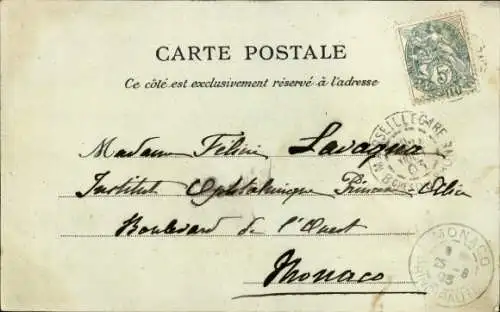 CARTE POSTALE
Ce côté est exclusivement réservé à l'adresse
5
MARSEILLE GARE
Madame Félini Lavagna
Institut Ophtalmique Princesse Alice
Boulevard de l'Ouest
Monaco
MONACO